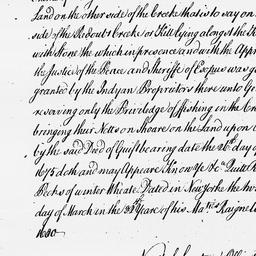 Land on the other side of the Creeke that is to say on
side of the Rodout Creeke or Kill lying alongst the
with Stone the which in presence and with the Approb
the Justice of the Peace and Sheriffe of Esopus was g
granted by the Indyan Propritors there unto
reserving only the Priviledge of ffishing in the Cre
bringing their Netts on Shoare on the Land upon
by the said Deed of Guift bearing date the 26th day of
1675 doth and may Appeare; Know Yee &c. Quitt R
Pecks of winter Wheate. Dated in New Yorke the tw
day of March in the Year of his Maties Raigne
1680